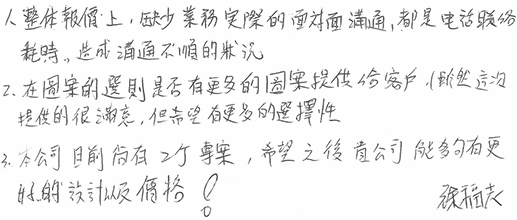 1. 整体報價上，缺少業務实際的面对面溝通，都是电话联络
耗時，造成溝通不順的狀況
2. 在圖案的選則是否有更多的圖案提供給客户，(雖然這次
提供的很滿意，但希望有更多的選擇性
3. 本公司目前尚有2个專案，希望之後貴公司能夠有更
好的設計以及價格!